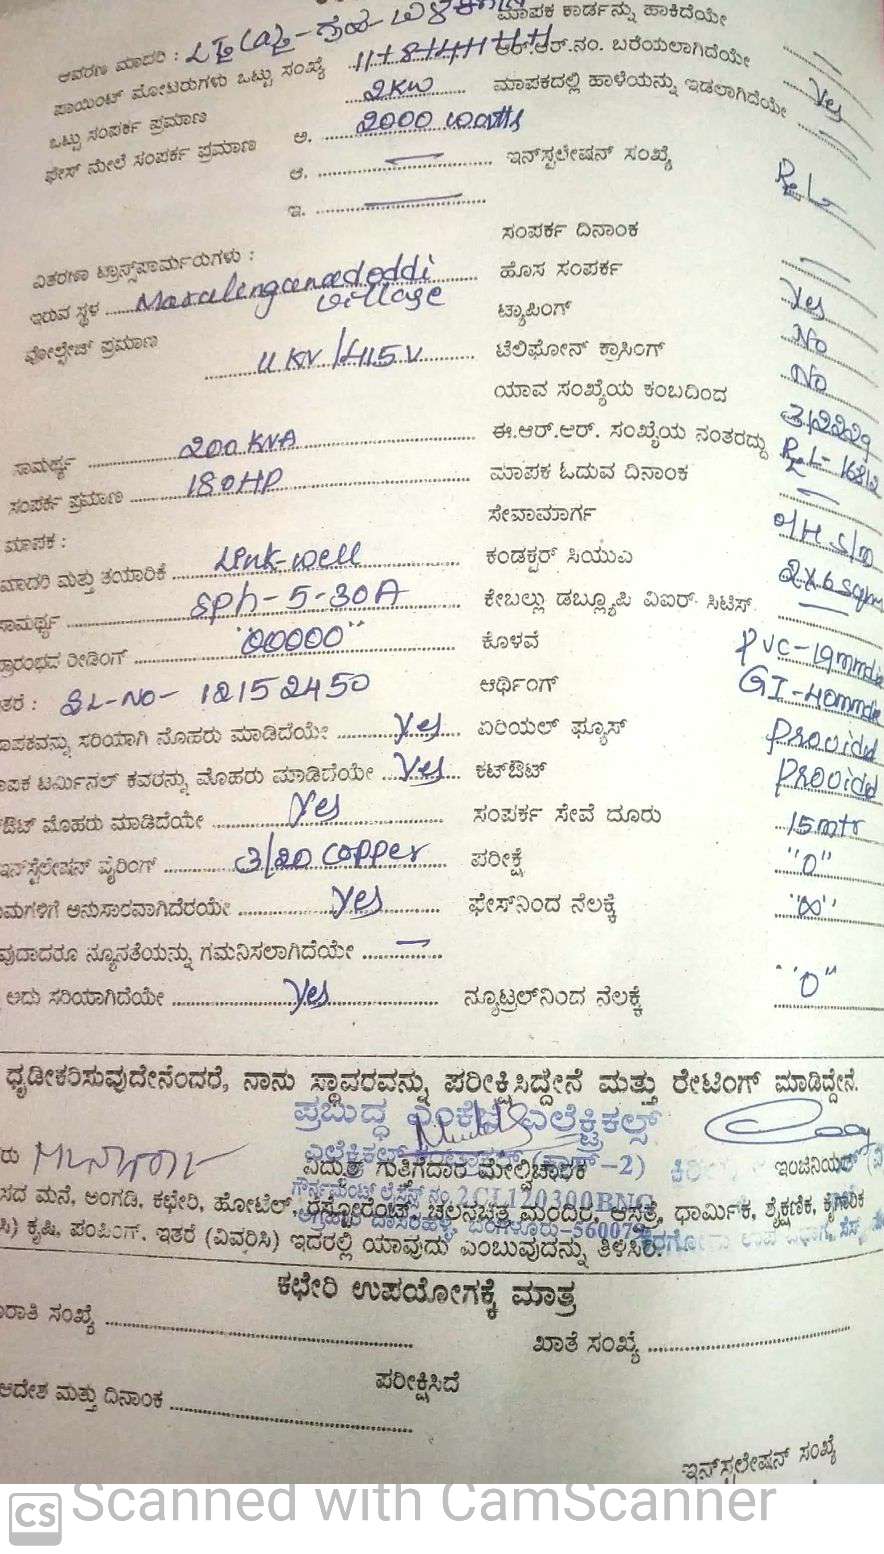 ಮಾಪಕ ಕಾರ್ಡನ್ನು ಹಾಕಿದೆಯೇ
ಆವರಣ ಮಾದರಿ :
ಆರ್.ಆರ್.ನಂ. ಬರೆಯಲಾಗಿದೆಯೇ Yes
ಪಾಯಿಂಟ್ ಮೋಟರುಗಳು ಒಟ್ಟು ಸಂಖ್ಯೆ
ಮಾಪಕದಲ್ಲಿ ಹಾಳೆಯನ್ನು ಇಡಲಾಗಿದೆಯೇ
ಒಟ್ಟು ಸಂಪರ್ಕ ಪ್ರಮಾಣ 2KW
ಫೇಸ್ ಮೇಲೆ ಸಂಪರ್ಕ ಪ್ರಮಾಣ ಅ. 2000 watts
ಆ. ಇನ್‌ಸ್ಟಲೇಷನ್ ಸಂಖ್ಯೆ
ಇ.
ಸಂಪರ್ಕ ದಿನಾಂಕ
ವಿತರಣಾ ಟ್ರಾನ್ಸ್‌ಪಾರ್ಮರುಗಳು :
ಇರುವ ಸ್ಥಳ Maralinganadoddi village ಹೊಸ ಸಂಪರ್ಕ Yes
ವೋಲ್ಟೇಜ್ ಪ್ರಮಾಣ 11 KV/415V ಟ್ಯಾಪಿಂಗ್ No
ಟೆಲಿಫೋನ್ ಕ್ರಾಸಿಂಗ್ No
ಯಾವ ಸಂಖ್ಯೆಯ ಕಂಬದಿಂದ
ಸಾಮರ್ಥ್ಯ 200 KVA ಈ.ಆರ್.ಆರ್. ಸಂಖ್ಯೆಯ ನಂತರದ್ದು
ಸಂಪರ್ಕ ಪ್ರಮಾಣ 180HP ಮಾಪಕ ಓದುವ ದಿನಾಂಕ
ಮಾಪಕ : ಸೇವಾಮಾರ್ಗ O/H
ಮಾದರಿ ಮತ್ತು ತಯಾರಿಕೆ Link-well ಕಂಡಕ್ಟರ್ ಸಿಯುಎ 2x6 sqmm
ಸಾಮರ್ಥ್ಯ SPh-5-30A ಕೇಬಲ್ಲು ಡಬ್ಲ್ಯೂಪಿ ವಿಐರ್ ಸಿಟಿಸ್
ಪ್ರಾರಂಭದ ರೀಡಿಂಗ್ "00000" ಕೊಳವೆ PVC-19mmdia
ತರೆ : SL-NO- 12152450 ಆರ್ಥಿಂಗ್ GI-40mmdia
ಾಪಕವನ್ನು ಸರಿಯಾಗಿ ನೊಹರು ಮಾಡಿದೆಯೇ Yes ಏರಿಯಲ್ ಫ್ಯೂಸ್ Provided
ಾಪಕ ಟರ್ಮಿನಲ್ ಕವರನ್ನು ಮೊಹರು ಮಾಡಿದೆಯೇ Yes ಕಟ್‌ಔಟ್ Provided
ಔಟ್ ಮೊಹರು ಮಾಡಿದೆಯೇ Yes ಸಂಪರ್ಕ ಸೇವೆ ದೂರು 15mtr
ಇನ್‌ಸ್ಟೆಲೇಷನ್ ವೈರಿಂಗ್ 3/20 copper ಪರೀಕ್ಷೆ "0"
ಮಗಳಿಗೆ ಅನುಸಾರವಾಗಿದೆರಯೇ Yes ಫೇಸ್‌ನಿಂದ ನೆಲಕ್ಕೆ "∞"
ವುದಾದರೂ ನ್ಯೂನತೆಯನ್ನು ಗಮನಿಸಲಾಗಿದೆಯೇ
ಅದು ಸರಿಯಾಗಿದೆಯೇ Yes ನ್ಯೂಟ್ರಲ್‌ನಿಂದ ನೆಲಕ್ಕೆ "0"
ಧೃಡೀಕರಿಸುವುದೇನೆಂದರೆ, ನಾನು ಸ್ಥಾವರವನ್ನು ಪರೀಕ್ಷಿಸಿದ್ದೇನೆ ಮತ್ತು ರೇಟಿಂಗ್ ಮಾಡಿದ್ದೇನೆ.
ಪ್ರಬುದ್ಧ ಎಲೆಕ್ಟ್ರಿಕಲ್ಸ್
ವಿದ್ಯುತ್ ಗುತ್ತಿಗೆದಾರ ಮೇಲ್ವಿಚಾರಕ ಇಂಜಿನಿಯರ್
ಗೌರ್ನಮೆಂಟ್ ಲೈಸೆನ್ಸ್ ನಂ. 2CL120300BNG
ಸದ ಮನೆ, ಅಂಗಡಿ, ಕಛೇರಿ, ಹೋಟೆಲ್, ರೆಸ್ಟೋರೆಂಟ್, ಚಲನಚಿತ್ರ ಮಂದಿರ, ಆಸ್ಪತ್ರೆ, ಧಾರ್ಮಿಕ, ಶೈಕ್ಷಣಿಕ, ಕೈಗಾರಿಕ
ಸಿ) ಕೃಷಿ, ಪಂಪಿಂಗ್, ಇತರೆ (ವಿವರಿಸಿ) ಇದರಲ್ಲಿ ಯಾವುದು ಎಂಬುವುದನ್ನು ತಿಳಿಸಿರಿ.
ಕಛೇರಿ ಉಪಯೋಗಕ್ಕೆ ಮಾತ್ರ
ರಾತಿ ಸಂಖ್ಯೆ ಖಾತೆ ಸಂಖ್ಯೆ
ಪರೀಕ್ಷಿಸಿದೆ
ಆದೇಶ ಮತ್ತು ದಿನಾಂಕ
ಇನ್‌ಸ್ಟಲೇಷನ್ ಸಂಖ್ಯೆ
CS Scanned with CamScanner